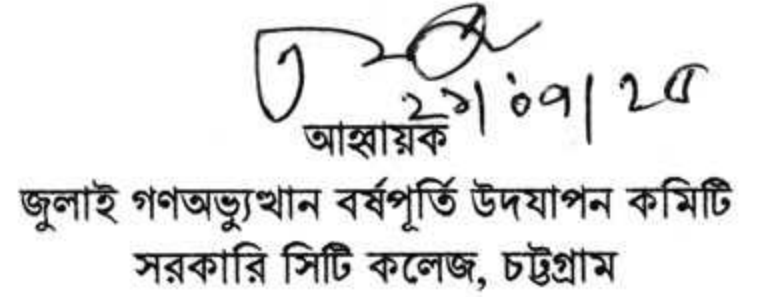 ২১/০৭/২৫
আহ্বায়ক
জুলাই গণঅভ্যুত্থান বর্ষপূর্তি উদযাপন কমিটি
সরকারি সিটি কলেজ, চট্টগ্রাম